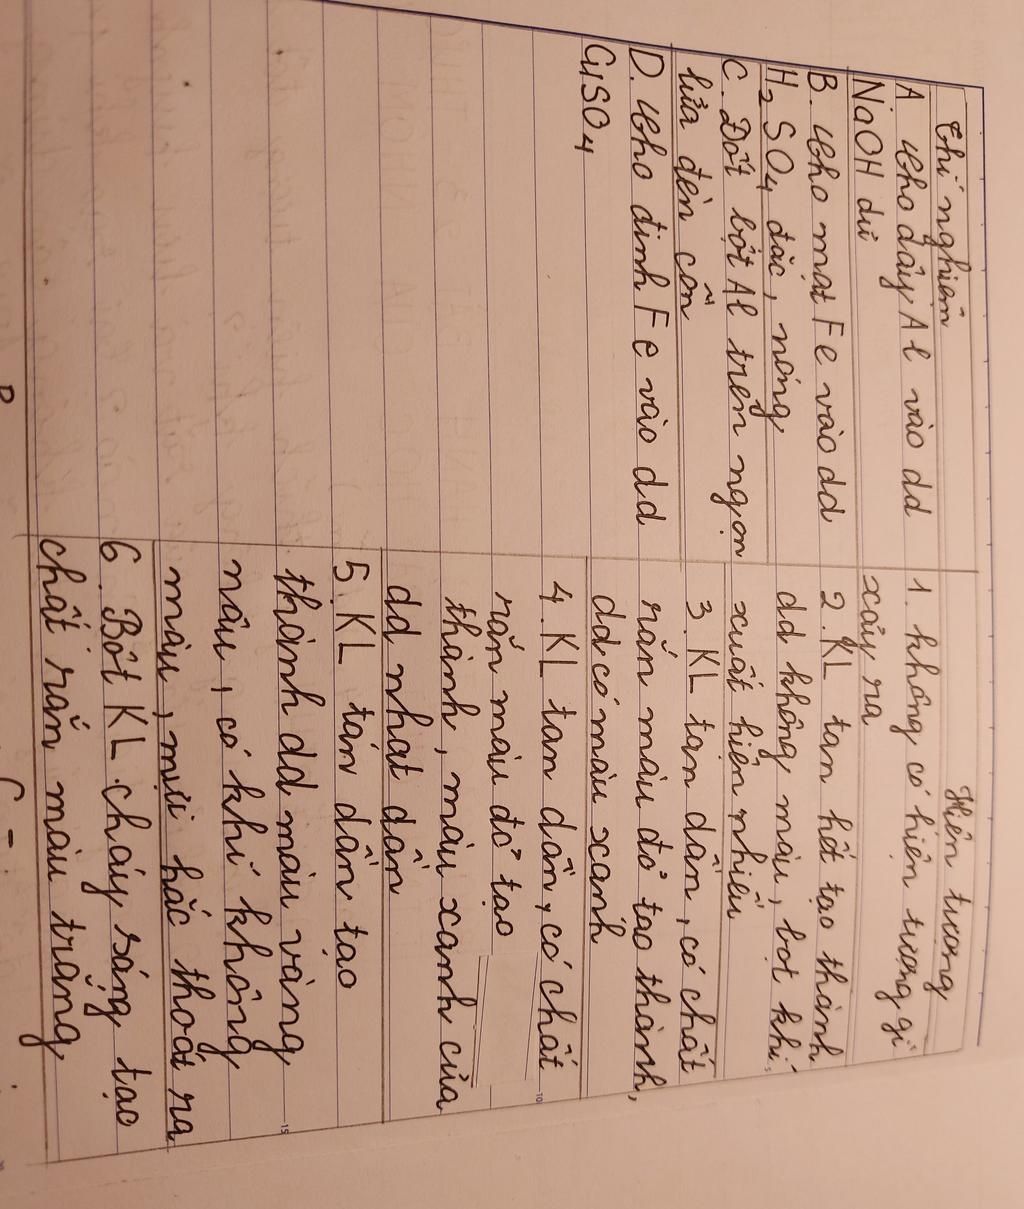 Thí nghiệm
A Cho dây Al vào dd
NaOH dư
B. Cho mạt Fe vào dd
H₂SO₄ đặc, nóng
C. Đốt bột Al trên ngọn
lửa đèn cồn
D. Cho đinh Fe vào dd
CuSO₄
Hiện tượng
1. không có hiện tượng gì
xảy ra
2. KL tan hết tạo thành
dd không màu, bọt khí
xuất hiện nhiều
3. KL tan dần, có chất
rắn màu đỏ tạo thành,
dd có màu xanh
4. KL tan dần, có chất
rắn màu đỏ tạo
thành, màu xanh của
dd nhạt dần
5. KL tan dần tạo
thành dd màu vàng
nâu, có khí không
màu, mùi hắc thoát ra
6. Bột KL cháy sáng tạo
chất rắn màu trắng